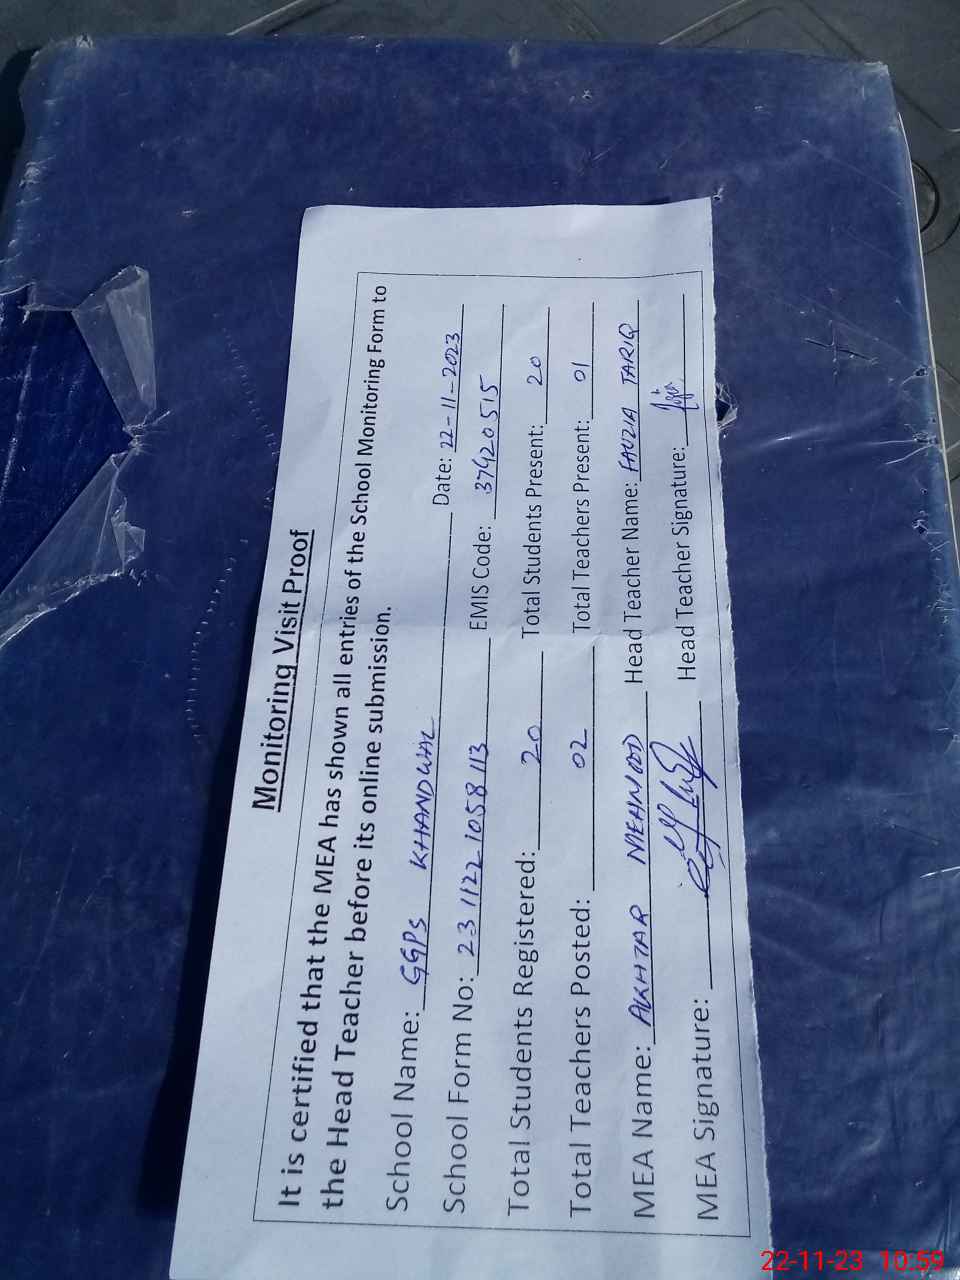 Monitoring Visit Proof
It is certified that the MEA has shown all entries of the School Monitoring Form to
the Head Teacher before its online submission.
School Name: GGPS KHANDWAL Date: 22-11-2023
School Form No: 231122 1058113 EMIS Code: 37420515
Total Students Registered: 20 Total Students Present: 20
Total Teachers Posted: 02 Total Teachers Present: 01
MEA Name: AKHTAR MEHMOOD Head Teacher Name: FAUZIA TARIQ
MEA Signature: Head Teacher Signature:
22-11-23 10:59